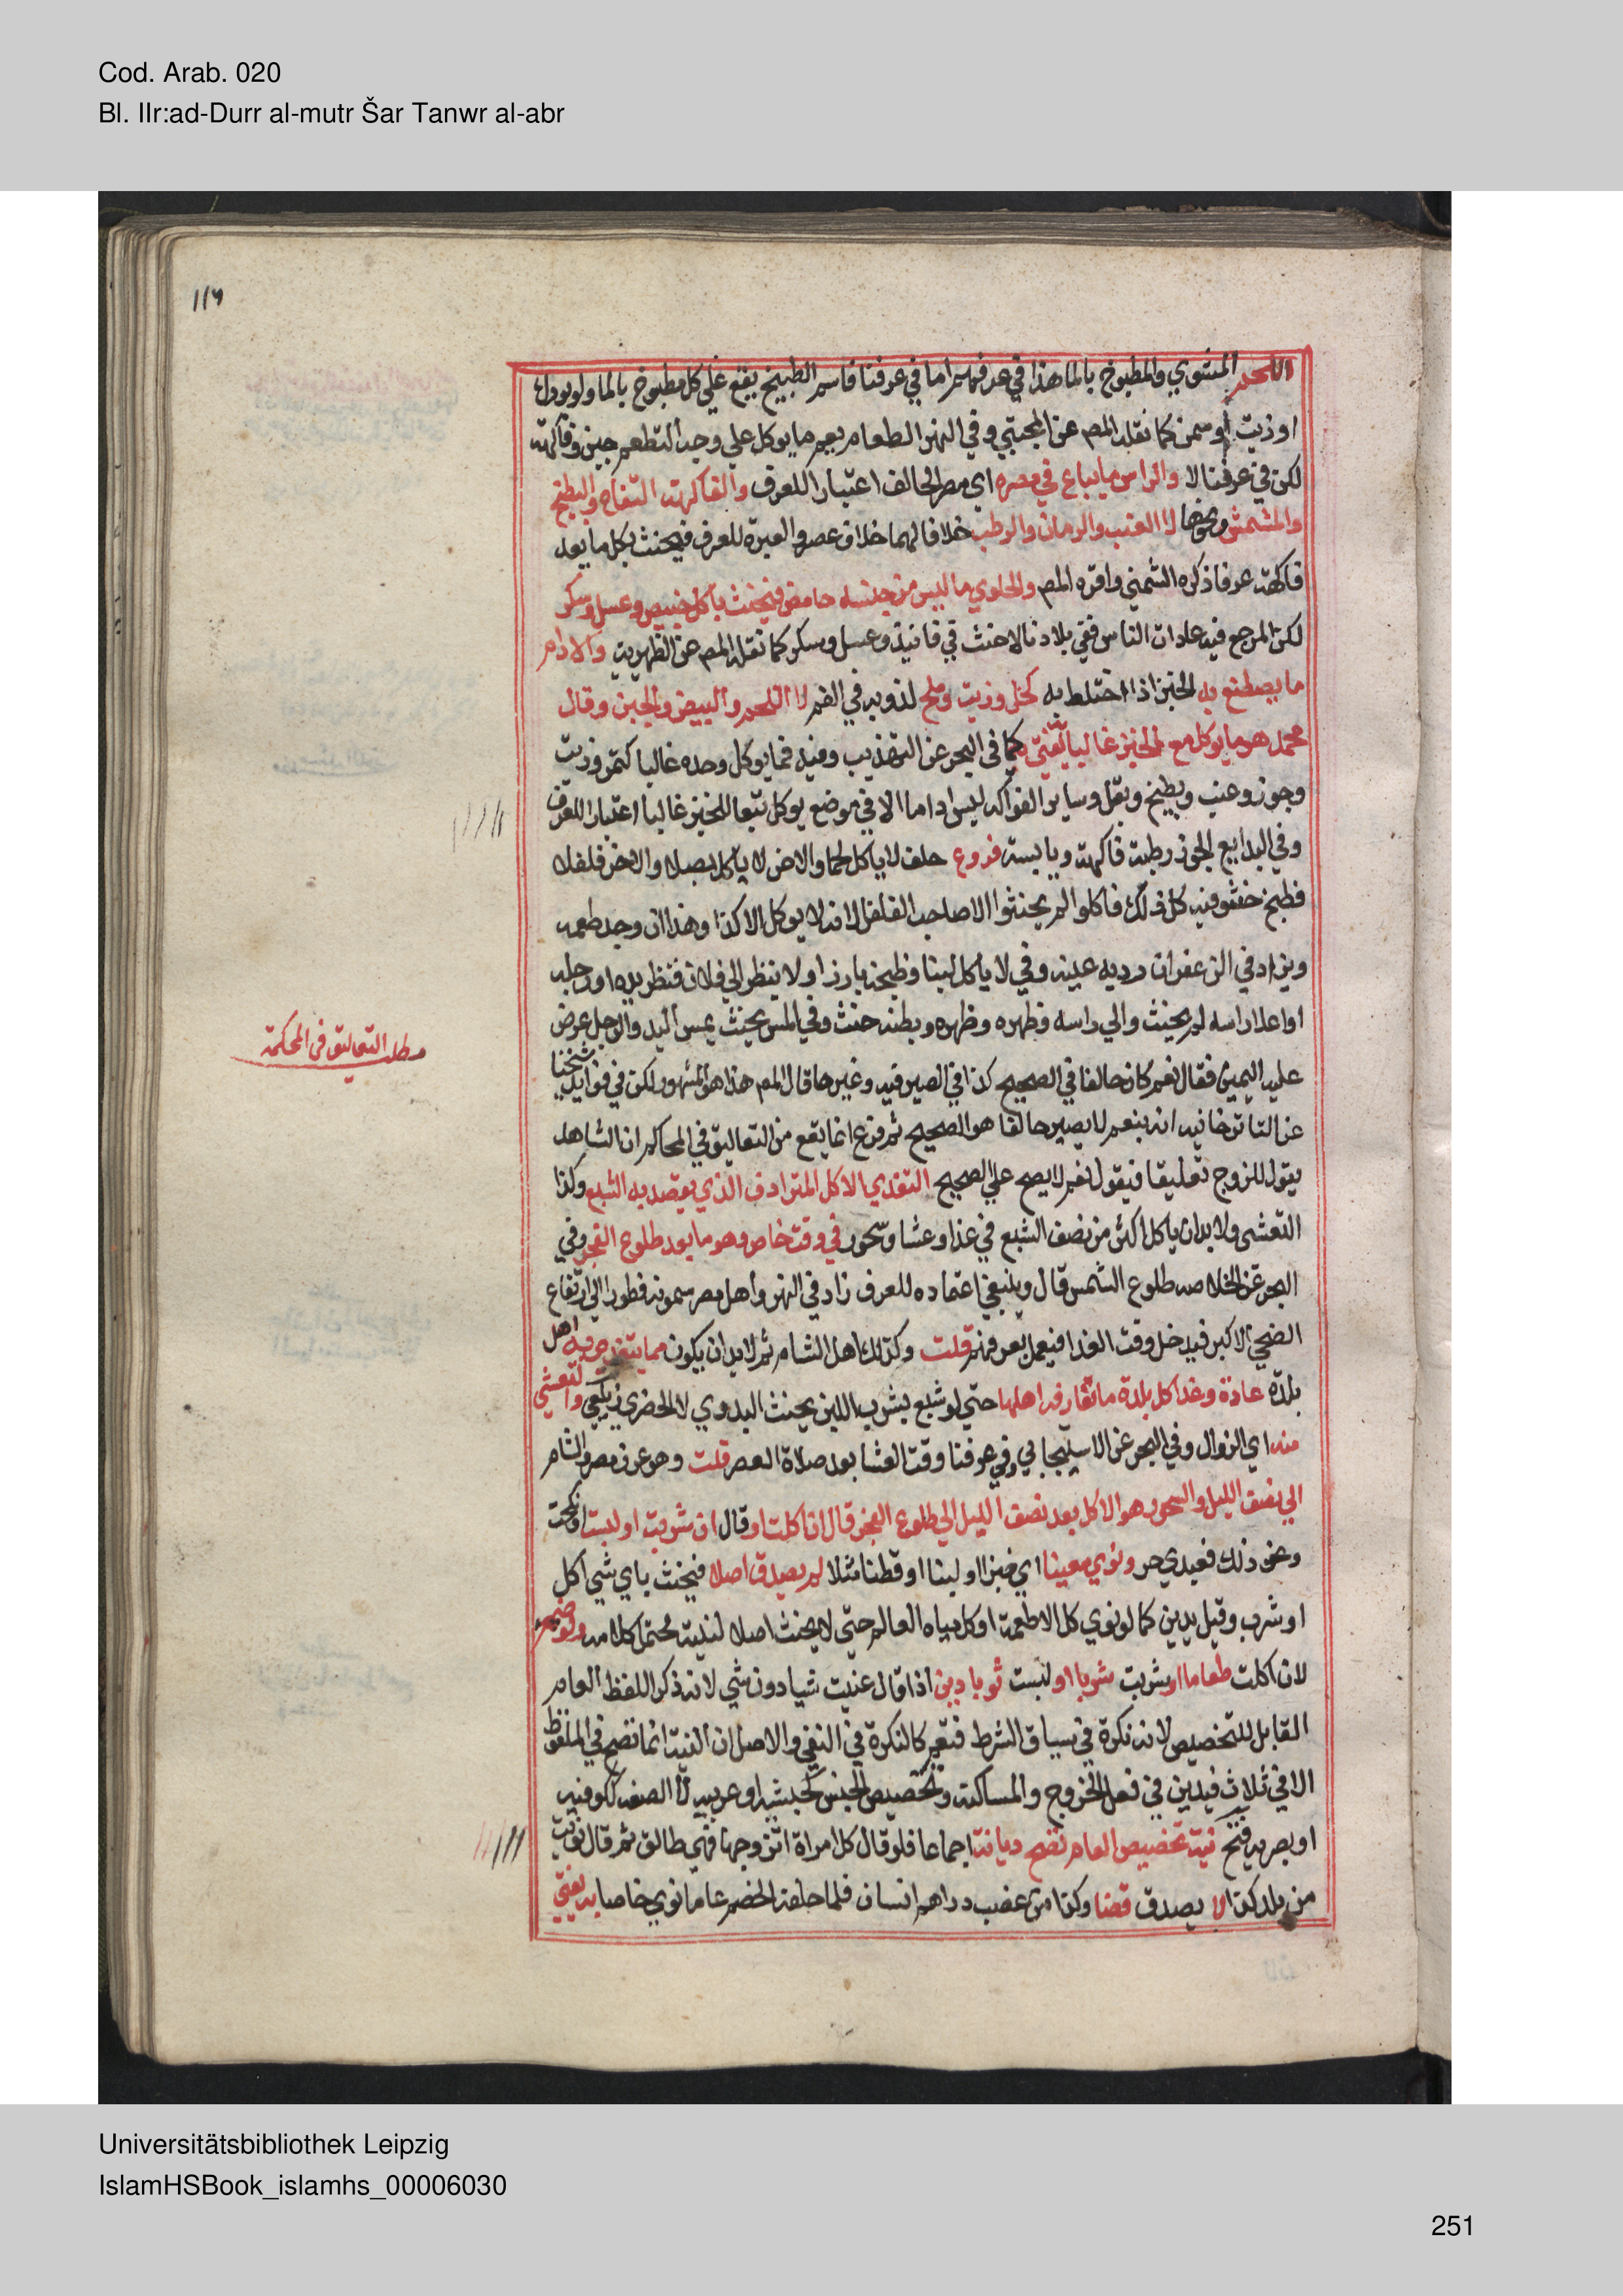 Cod. Arab. 020
Bl. IIr:ad-Durr al-mutr Šar Tanwr al-abr
116
اللحم المشوي والمطبوخ بالما هذا في عرفهم اما في عرفنا فاسم الطبيخ يقع علي كل مطبوخ بالما ولو بودك
او زيت او سمن كما نقله المص عن المجتبي وفي النهر الطعام يعم ما يوكل علي وجه التطعم جبن وفاكهة
لكن في عرفنا لا والراس ما يباع في مصره اي مصر الحالف اعتبارا للعرف والفاكهة التفاح والبطيخ
والمشمش ونحوها لا العنب والرمان والرطب خلافا لهما خلاف عصر والعبرة للعرف فيحنث بكل ما يعد
فاكهة عرفا ذكره الشمني واقره المص والحلوي ما ليس من جنسه حامض فيحنث باكل خبيص وعسل وسكر
لكن المرجع فيه عادات الناس ففي بلادنا لا حنث في فانيذ وعسل وسكر كما نقله المص عن الظهيرية والادام
ما يصطبغ به الخبز اذا اختلط به كخل وزيت وملح لذوبه في الفم لا اللحم والبيض والجبن وقال
محمد هو ما يوكل مع الخبز غالبا به يفتي كما في البحر عن التهذيب وفيه فما يوكل وحده غالبا كتمر وزبيب
وجوز وعنب وبطيخ وبقل وساير الفواكه ليس اداما الا في موضع يوكل تبعا للخبز غالبا اعتبارا للعرف
وفي البدايع الجوز رطبه فاكهة ويابسه فروع حلف لا ياكل لحما والاخر لا ياكل بصلا والاخر فلفلا
فطبخ حشو فيه كل ذلك فاكلوا لم يحنثوا الا صاحب الفلفل لانه لا يوكل الا كذا وهذا ان وجد طعمه
ويزاد في الزعفران رويه عينه وفي لا ياكل لبنا فطبخه بارز او لا ينظر الي فلان فنظر يده او رجله
او اعلا راسه لم يحنث والي راسه وظهره وظهره وبطنه حنث وفي المس يحنث بمس اليد والرجل عرض
عليه اليمين فقال نعم كان حالفا في الصحيح كذا في الصيرفيه وغيرها قال المص هذا هو المشهور لكن في فوايد شيخنا
عن التاترخانيه انه بنعم لا يصير حالفا هو الصحيح ثم فرع انما يقع من التعاليق في المحاكم ان الشاهد
يقول للزوج تعليقا فيقول نعم لا يصح علي الصحيح التغدي الاكل المترادف الذي يقصد به الشبع وكذا
التعشي ولا بد ان ياكل اكثر من نصف الشبع في غدا وعشا وسحور في وقت خاص وهو ما بعد طلوع الفجر وفي
البحر عن الخلاصه طلوع الشمس قال وينبغي اعتماده للعرف زاد في النهر واهل مصر يسمونه فطورا الي ارتفاع
الضحي الاكبر فيدخل وقت الغدا فيعمل بعرفهم قلت وكذلك اهل الشام ثم لا بد ان يكون مما يتغدي به اهل
بلده عادة وغدا كل بلدة ما تعارفه اهلها حتي لو شبع بشرب اللبن يحنث البدوي لا الحضري زيلعي والتعشي
منه اي الزوال وفي البحر عن الاسبيجابي وفي عرفنا وقت العشا بعد صلاة العصر قلت وهو عرف مصر والشام
الي نصف الليل والسحور هو الاكل بعد نصف الليل الي طلوع الفجر قال ان اكلت او قال ان شربت او لبست او نكحت
ونحو ذلك فعبدي حر ونوي معينا اي خبزا او لبنا او قطنا مثلا لم يصدق اصلا فيحنث باي شي اكل
او شرب وقيل يدين كما لو نوي كل الاطعمة او كل مياه العالم حتي لا يحنث اصلا لنيته محتمل كلامه ولو ضم
لان اكلت طعاما او شربت شربا او لبست ثوبا دين اذا قال عنيت شيا دون شي لانه ذكر اللفظ العام
القابل للتخصيص لانه نكرة في سياق الشرط فتعم كالنكرة في النفي والاصل ان النية انما تصح في الملفوظ
الا في ثلاث فيدين في فعل الخروج والمساكنة وتخصيص الجنس كحبشيه او عربيه لا الصفه ككوفيه
او بصريه فتح نية تخصيص العام تصح ديانة اجماعا فلو قال كل امراة اتزوجها فهي طالق ثم قال نويت
من بلد كذا لا يصدق قضا وكذا من غصب دراهم انسان فلما حلفه الخصم عاما نوي خاصا به يفتي
مطلب التعاليق في المحكمة
Universitätsbibliothek Leipzig
IslamHSBook_islamhs_00006030
251